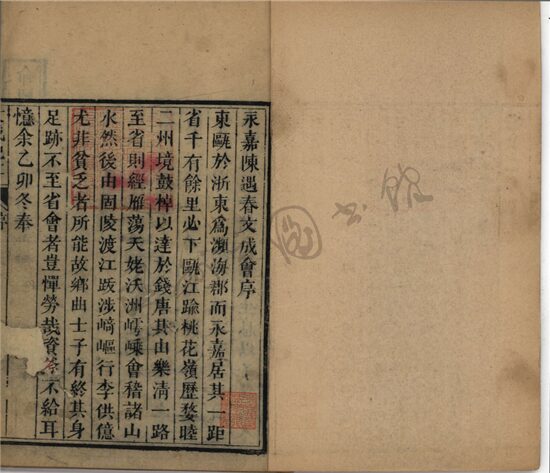 永嘉陳遇春文成會序
東甌於浙東為瀕海郡而永嘉居其一距
省千有餘里必下甌江踰桃花嶺歷婺睦
二州境鼓棹以達於錢唐其由樂清一路
至省則經雁蕩天姥沃洲嶀嵊會稽諸山
水然後由固陵渡江跋涉崎嶇行李供億
尤非貧乏者所能故鄉曲士子有終其身
足跡不至省會者豈憚勞哉資斧不給耳
憶余乙卯冬奉